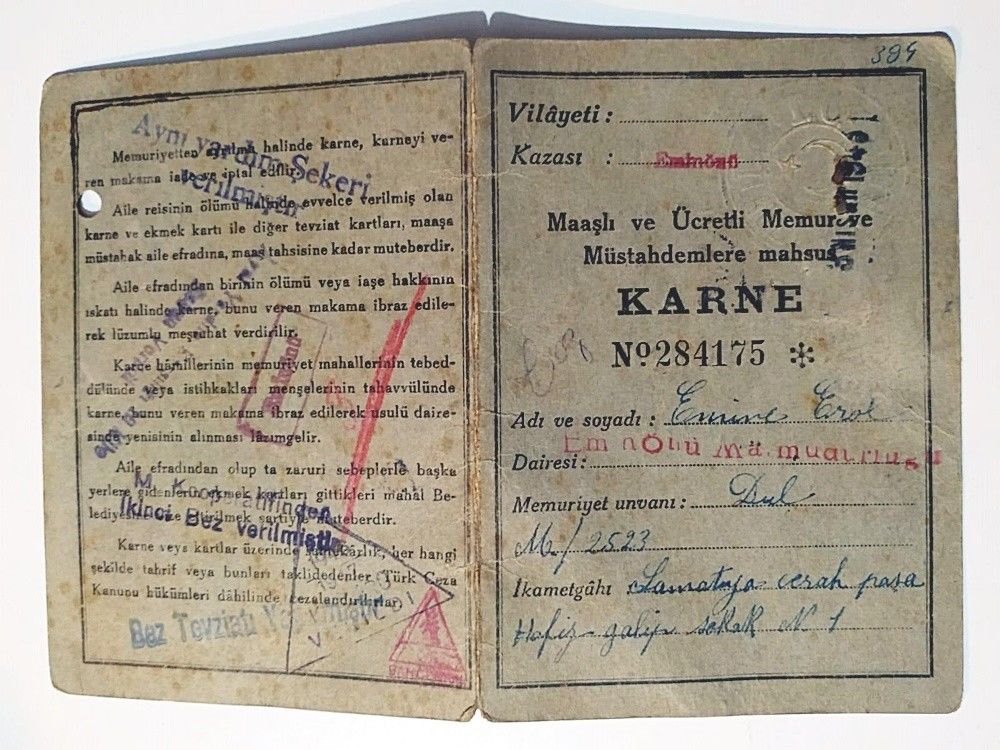 Aynı yardım Şekeri
verilmiştir
Memuriyetten ayrılma halinde karne, karneyi ve-
ren makama iade ve iptal edilir.
Aile reisinin ölümü halinde evvelce verilmiş olan
karne ve ekmek kartı ile diğer tevziat kartları, maaşa
müstahak aile efradına, maaş tahsisine kadar muteberdir.
Aile efradından birinin ölümü veya iaşe hakkının
ıskatı halinde karne, bunu veren makama ibraz edile-
rek lüzumlu meşruhat verdirilir.
Karne hâmillerinin memuriyet mahallerinin tebed-
dülünde veya istihkakları menşelerinin tahavvülünde
karne, bunu veren makama ibraz edilerek usulü daire-
sinde yenisinin alınması lâzımgelir.
Aile efradından olup ta zaruri sebeplerle başka
yerlere gidenlerin ekmek kartları gittikleri mahal Be-
lediyesine ettirilmek şartiyle muteberdir.
Karne veya kartlar üzerinde sahtekârlık, her hangi
şekilde tahrif veya bunları taklidedenler Türk Ceza
Kanunu hükümleri dâhilinde cezalandırılır.
Eminönü
M. Koop
İkinci Bez verilmiştir
Bez Tevziatı
384
Vilâyeti :
Kazası : Eminönü
Maaşlı ve Ücretli Memur ve
Müstahdemlere mahsus
KARNE
No 284175 *
Adı ve soyadı : Emine Erol
Dairesi : Eminönü Malmüdürlüğü
Memuriyet unvanı : Dul
M/2523
İkametgâhı Samatya cerah paşa
Hafiz galip sokak N 1